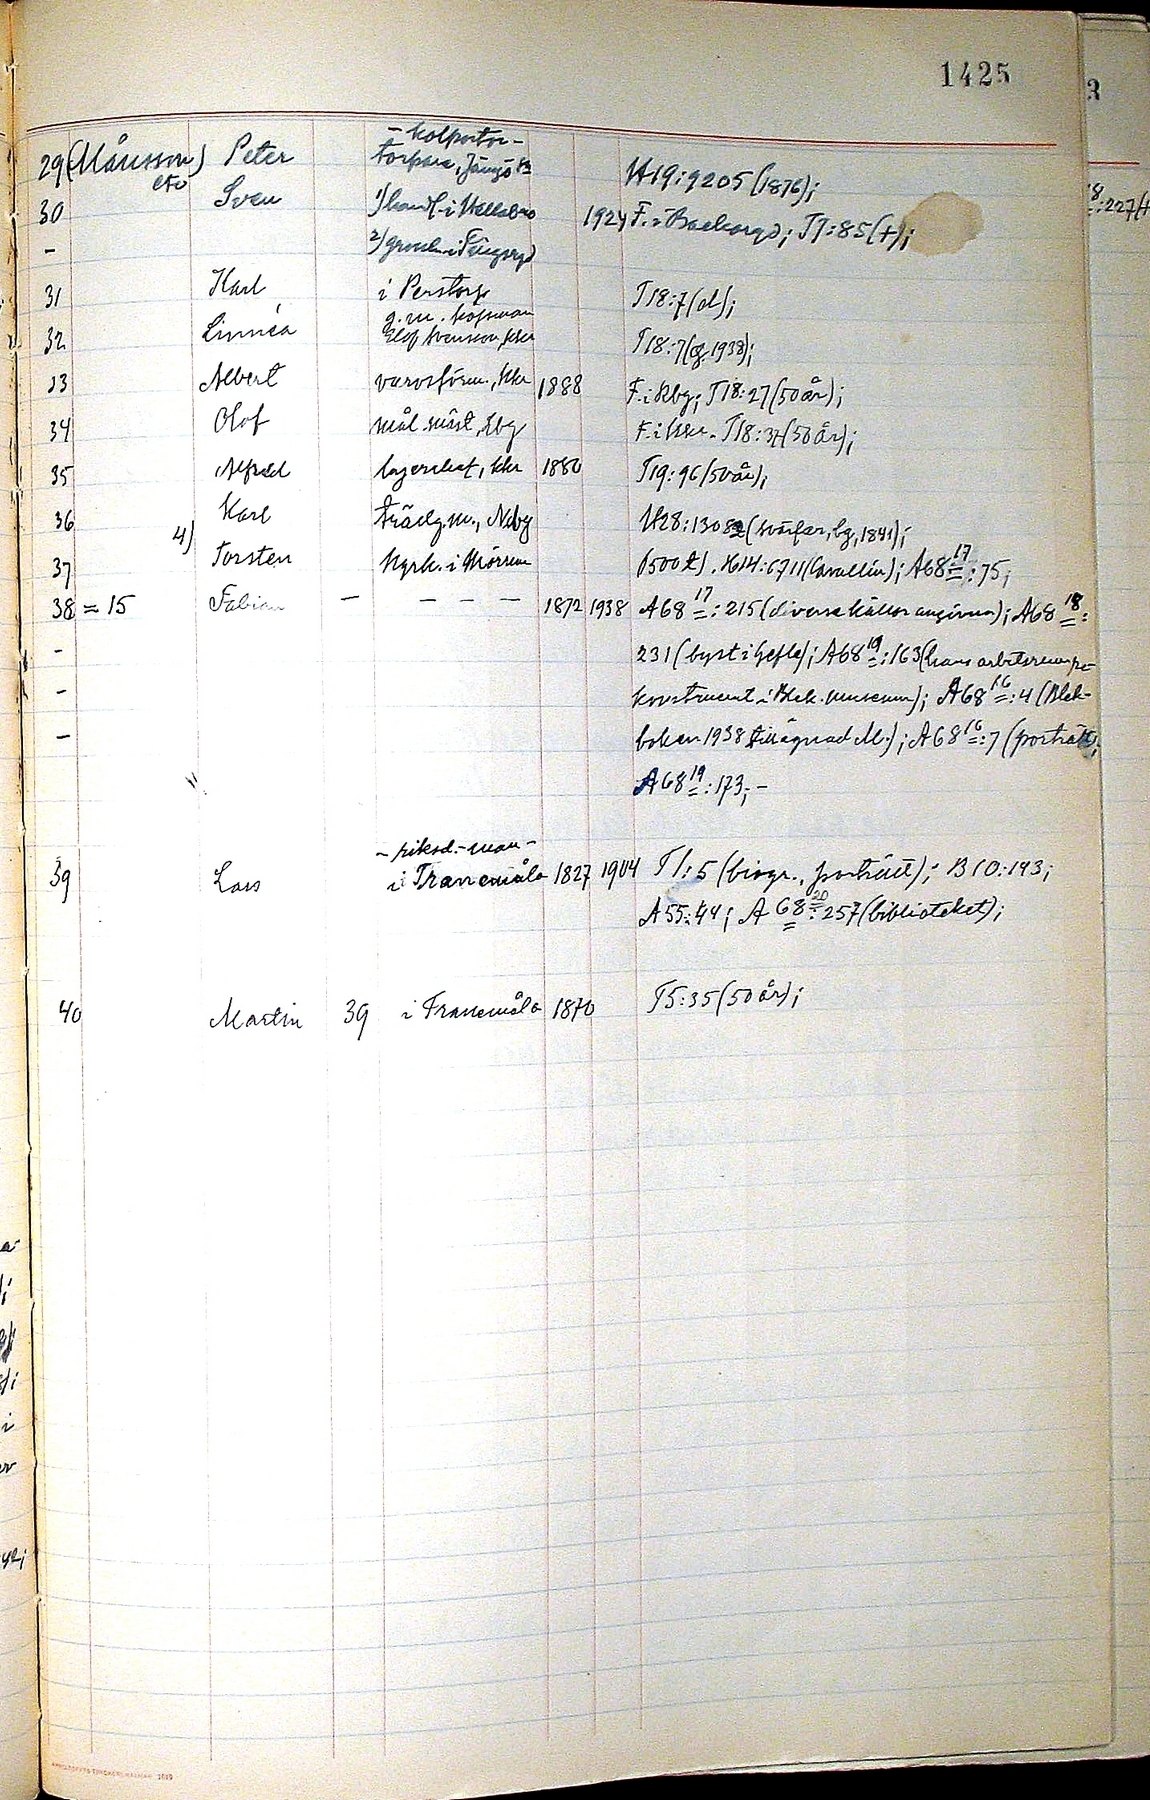 1425
- kolportör-
29 (Månsson) Peter torpare, Jämjö sn H19:9205 (1876);
etc
30 Sven 1) handl. i Hallabro 1924 F. i Backaryd; T7:85 (+);
- 2) grossh. i Tingsryd
31 Karl i Perstorp T18:7 (d);
g. m. köpman
32 Linnéa Elof Svensson, Kkr T18:7 (g. 1938);
33 Albert varvsförm., Kkr 1888 F. i Rby; T18:27 (50 år);
34 Olof mål. mäst., Rby F. i Kkr. T18:37 (50 år);
35 Alfred lagerchef, Kkr 1880 T19:96 (50 år);
36 Karl trädg. m., Neby H28:13082 (svärfar, bg, 1841);
4)
37 Torsten kyrk. i Mörrum (1500 t). H14:6711 (Cavallin); A68 17:75;
38 = 15 Fabian - - - - 1872 1938 A68 17:215 (diverse källor angivna); A68 18:
- 231 (byst i Gefle); A68 19:163 (hans arbetsrum re-
- konstruerat i Blek. museum); A68 16:4 (Blek-
- boken 1938 tillägnad M.); A68 16:7 (porträtt);
A68 19:173; -
- riksd.-man -
39 Lars i Tranemåla 1827 1904 T1:5 (biogr., porträtt); B10:143;
A55:44; A68 20:257 (biblioteket);
40 Martin 39 i Tranemåla 1870 T5:35 (50 år);